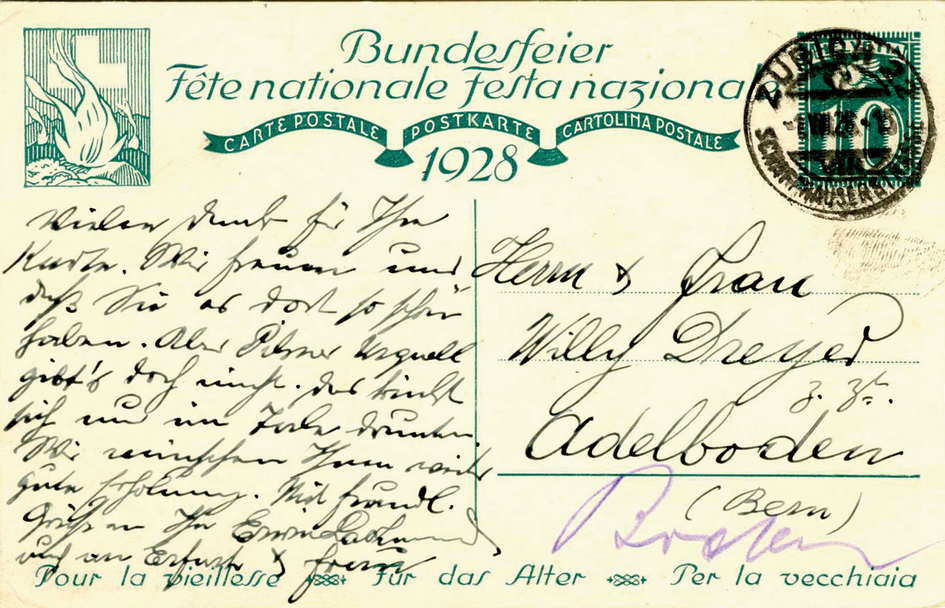 Bundesfeier
Fête nationale Festa naziona
CARTE POSTALE POSTKARTE CARTOLINA POSTALE
1928
HELVETIA
10
ZÜRICH 2
-1.VIII.28.-15
Vielen Dank für Ihre
Karte. Wir freuen uns
daß Sie es dort so schön
haben. Aber Pilsner Urquell
gibt's doch nicht. Das trinkt
sich nur im Tale drunten.
Wir wünschen Ihnen weiter
gute Erholung. Mit freundl.
Grüßen Ihr Erwin
und Frau
Herrn & Frau
Willy Dreyer
z. Zt.
Adelboden
(Bern)
Pour la vieillesse Für das Alter Per la vecchiaia